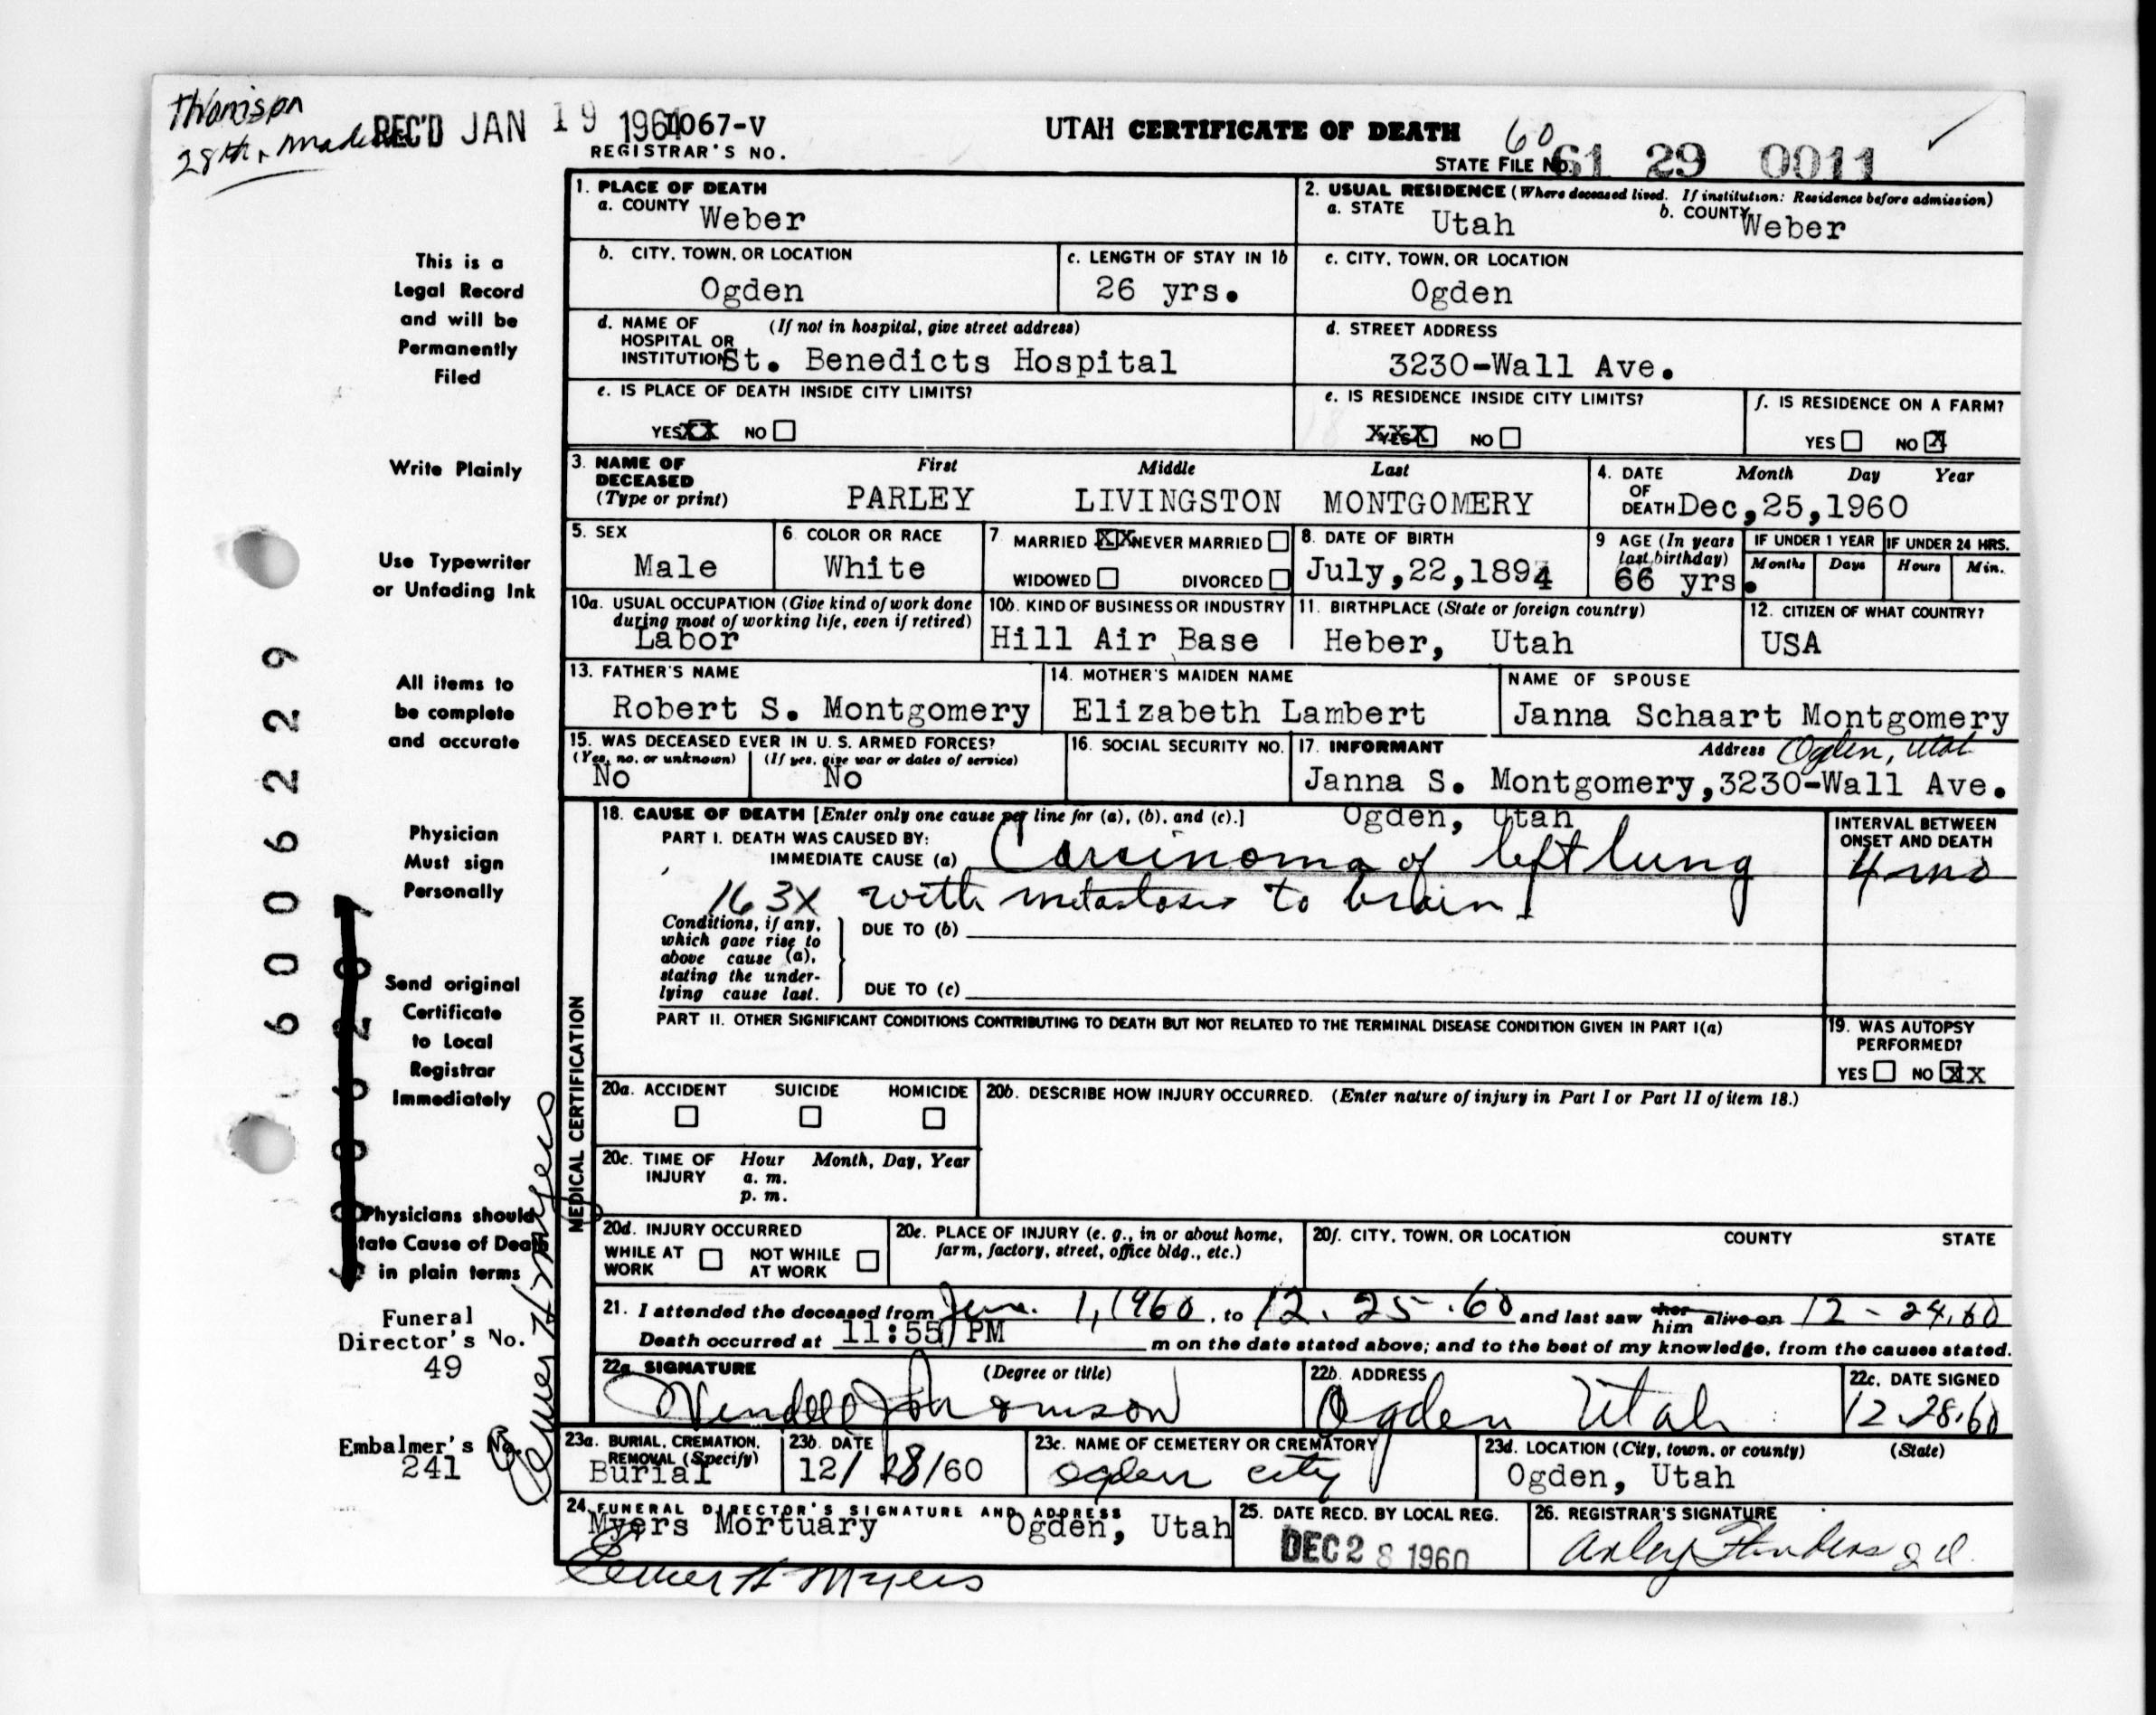 Thomson
28th & Mad
REC'D JAN 19 1961
1067-V
REGISTRAR'S NO.
UTAH CERTIFICATE OF DEATH
60
STATE FILE NO. 61 29 0011
1. PLACE OF DEATH
a. COUNTY Weber
2. USUAL RESIDENCE (Where deceased lived. If institution: Residence before admission)
a. STATE Utah b. COUNTY Weber
b. CITY, TOWN, OR LOCATION
Ogden
c. LENGTH OF STAY IN 1b
26 yrs.
c. CITY, TOWN, OR LOCATION
Ogden
d. NAME OF HOSPITAL OR INSTITUTION (If not in hospital, give street address)
St. Benedicts Hospital
d. STREET ADDRESS
3230-Wall Ave.
e. IS PLACE OF DEATH INSIDE CITY LIMITS?
YES XX NO
e. IS RESIDENCE INSIDE CITY LIMITS?
YES XXX NO
f. IS RESIDENCE ON A FARM?
YES NO X
3. NAME OF DECEASED (Type or print)
First Middle Last
PARLEY LIVINGSTON MONTGOMERY
4. DATE OF DEATH Month Day Year
Dec,25,1960
5. SEX
Male
6. COLOR OR RACE
White
7. MARRIED XX NEVER MARRIED
WIDOWED DIVORCED
8. DATE OF BIRTH
July,22,1894
9 AGE (In years last birthday)
66 yrs.
IF UNDER 1 YEAR
Months Days
IF UNDER 24 HRS.
Hours Min.
10a. USUAL OCCUPATION (Give kind of work done during most of working life, even if retired)
Labor
10b. KIND OF BUSINESS OR INDUSTRY
Hill Air Base
11. BIRTHPLACE (State or foreign country)
Heber, Utah
12. CITIZEN OF WHAT COUNTRY?
USA
13. FATHER'S NAME
Robert S. Montgomery
14. MOTHER'S MAIDEN NAME
Elizabeth Lambert
NAME OF SPOUSE
Janna Schaart Montgomery
15. WAS DECEASED EVER IN U. S. ARMED FORCES?
(Yes, no, or unknown) (If yes, give war or dates of service)
No No
16. SOCIAL SECURITY NO.
17. INFORMANT Address Ogden, Utah
Janna S. Montgomery,3230-Wall Ave.
Ogden, Utah
MEDICAL CERTIFICATION
18. CAUSE OF DEATH [Enter only one cause per line for (a), (b), and (c).]
PART I. DEATH WAS CAUSED BY:
IMMEDIATE CAUSE (a) Carcinoma of left lung
163X with metastases to brain
INTERVAL BETWEEN ONSET AND DEATH
4 mo
Conditions, if any, which gave rise to above cause (a), stating the underlying cause last.
DUE TO (b)
DUE TO (c)
PART II. OTHER SIGNIFICANT CONDITIONS CONTRIBUTING TO DEATH BUT NOT RELATED TO THE TERMINAL DISEASE CONDITION GIVEN IN PART I(a)
19. WAS AUTOPSY PERFORMED?
YES NO XX
20a. ACCIDENT SUICIDE HOMICIDE
20b. DESCRIBE HOW INJURY OCCURRED. (Enter nature of injury in Part I or Part II of item 18.)
20c. TIME OF INJURY Hour Month, Day, Year
a. m.
p. m.
20d. INJURY OCCURRED
WHILE AT WORK NOT WHILE AT WORK
20e. PLACE OF INJURY (e. g., in or about home, farm, factory, street, office bldg., etc.)
20f. CITY, TOWN, OR LOCATION COUNTY STATE
21. I attended the deceased from June 1, 1960, to 12.25.60 and last saw her him alive on 12-24.60
Death occurred at 11:55 PM m on the date stated above; and to the best of my knowledge, from the causes stated.
22a. SIGNATURE (Degree or title)
Wendell J Thomson
22b. ADDRESS
Ogden Utah
22c. DATE SIGNED
12.28.60
23a. BURIAL, CREMATION, REMOVAL (Specify)
Burial
23b. DATE
12/28/60
23c. NAME OF CEMETERY OR CREMATORY
Ogden city
23d. LOCATION (City, town, or county) (State)
Ogden, Utah
24. FUNERAL DIRECTOR'S SIGNATURE AND ADDRESS
Myers Mortuary Ogden, Utah
Elmer H Myers
25. DATE RECD. BY LOCAL REG.
DEC 28 1960
26. REGISTRAR'S SIGNATURE
This is a
Legal Record
and will be
Permanently
Filed
Write Plainly
Use Typewriter
or Unfading Ink
All items to
be complete
and accurate
Physician
Must sign
Personally
Send original
Certificate
to Local
Registrar
Immediately
Physicians should
State Cause of Death
in plain terms
Funeral
Director's No.
49
Embalmer's No.
241
Elmer H Myers
60 06229